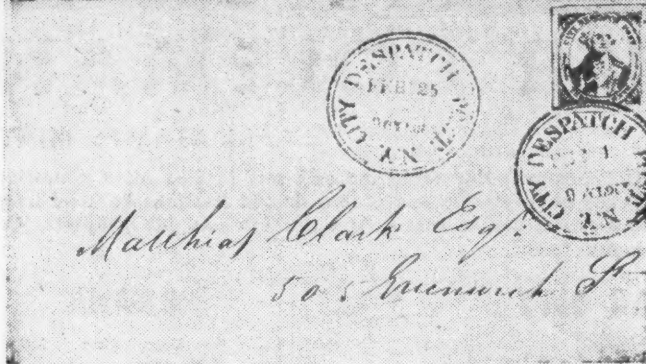 CITY DESPATCH POST. N.Y.
FEB 25
CITY DESPATCH POST. N.Y.
1
9 O'Clock
Matthias Clark Esqr.
505 Greenwich St